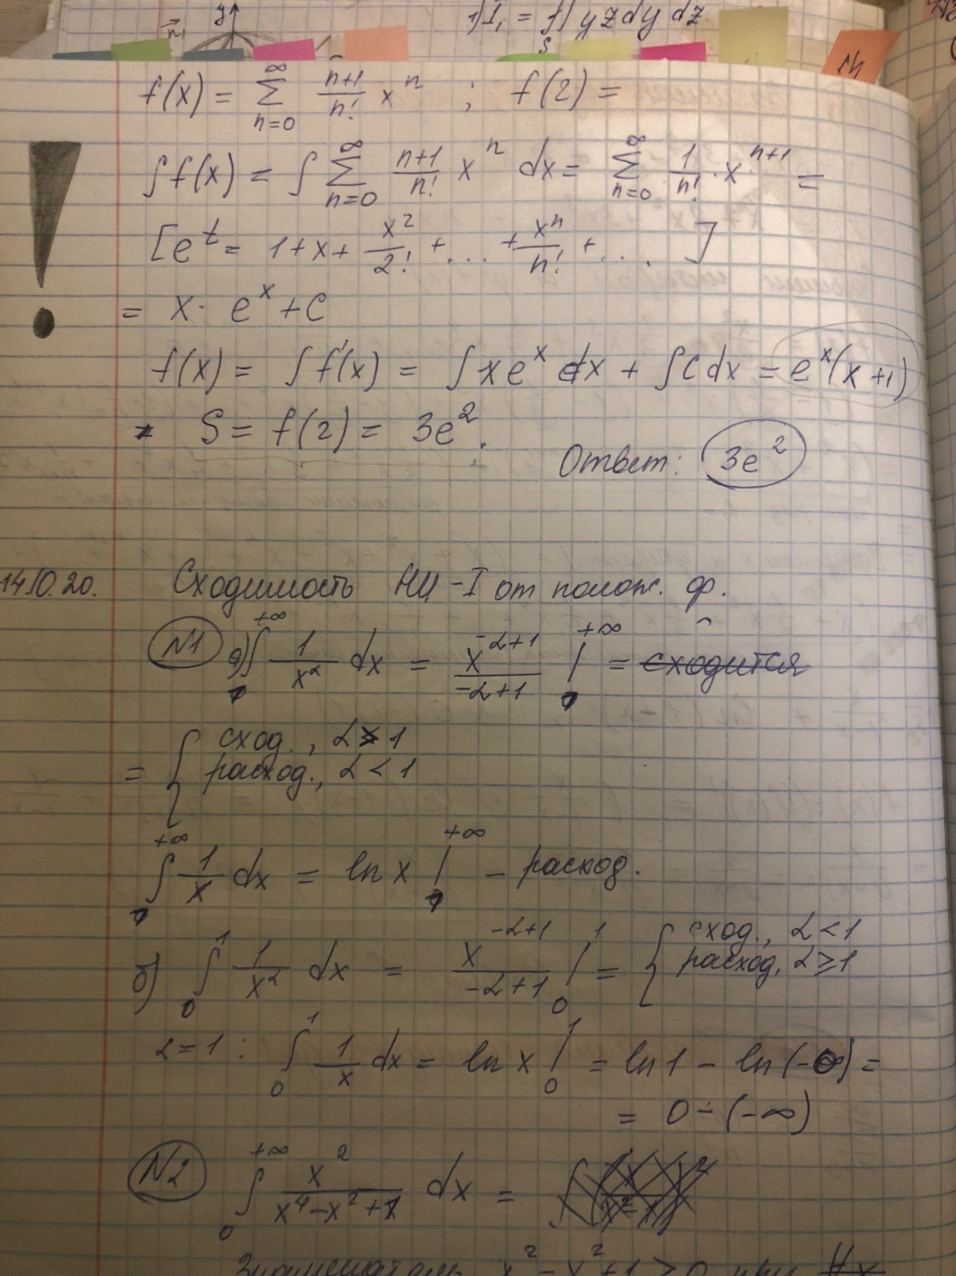 y
1) I₁ = ∫∫ yz dy dz
S
f(x) = ∑_{n=0}^{∞} (n+1)/n! x^n ; f(2) =
∫f(x) = ∫ ∑_{n=0}^{∞} (n+1)/n! x^n dx = ∑_{n=0}^{∞} 1/n! · x^{n+1} =
[e^t = 1+x+ x²/2! + ... + x^n/n! + .... ]
= x · e^x + C
f(x) = ∫f'(x) = ∫xe^x dx + ∫C dx = e^x(x+1)
S = f(2) = 3e².
Ответ: 3e²
14.10.20. Сходимость НИ-I от полож. ф.
N1 а) ∫^{+∞} 1/x^α dx = x^{-α+1}/(-α+1) |^{+∞} = сходится
= { сход., α > 1
расход., α < 1
∫^{+∞} 1/x dx = ln x |^{+∞} – расход.
б) ∫_0^1 1/x^α dx = x^{-α+1}/(-α+1) |_0^1 = { сход., α < 1
расход, α ≥ 1
α=1 : ∫_0^1 1/x dx = ln x |_0^1 = ln 1 – ln(-0) =
= 0 – (-∞)
N2 ∫_0^{+∞} x²/(x⁴-x²+1) dx = ∫
Знаменатель x² - x² + 1 > 0 при ∀x